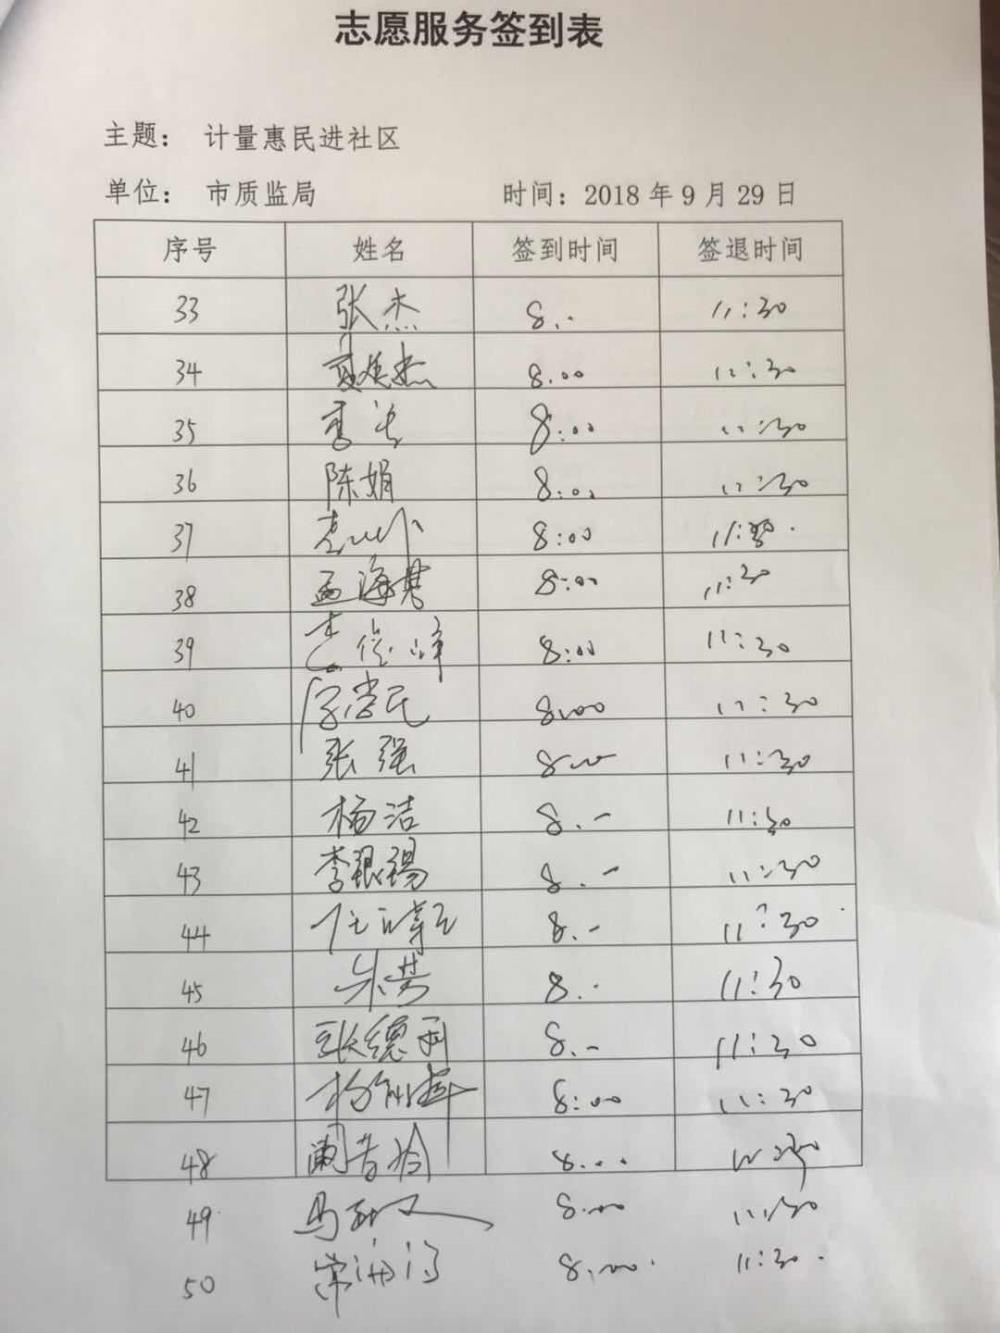 志愿服务签到表
主题： 计量惠民进社区
单位： 市质监局 时间：2018 年 9 月 29 日
序号 姓名 签到时间 签退时间
33 张杰 8.- 11:30
34 8.00 11:30
35 8:00 11:30
36 陈娟 8:00 11:30
37 8:00 11:30
38 孟海 8:00 11:30
39 俊峰 8:00 11:30
40 民 8:00 11:30
41 张强 8:00 11:30
42 杨洁 8.- 11:30
43 李银锡 8.- 11:30
44 任 8.- 11:30
45 朱芳 8.- 11:30
46 张德利 8.- 11:30
47 杨 8:00 11:30
48 8:00
49 马 8:00 11:30
50 常 8:00 11:30